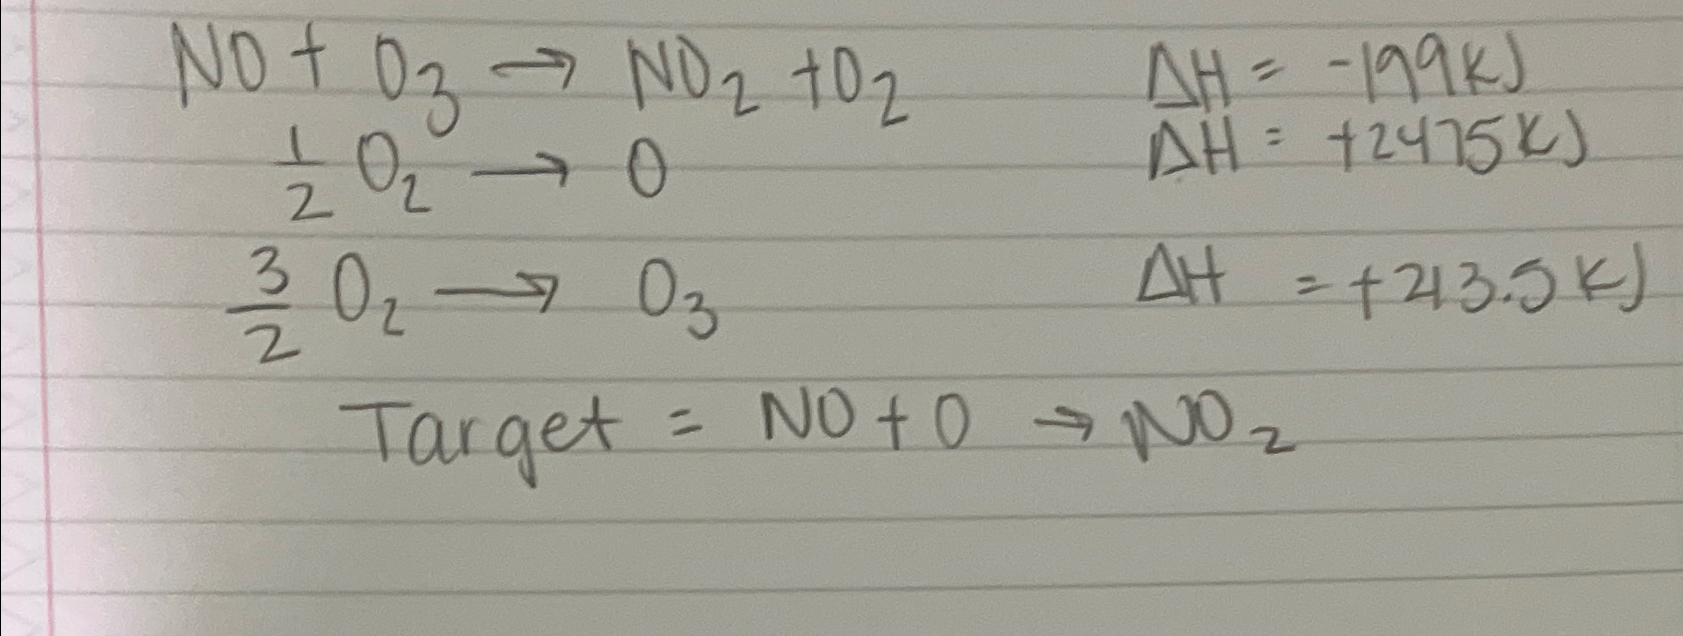 NO + O₃ → NO₂ + O₂ ΔH = -199kJ
1/2 O₂ → O ΔH = +2475kJ
3/2 O₂ → O₃ ΔH = +213.5kJ
Target = NO + O → NO₂